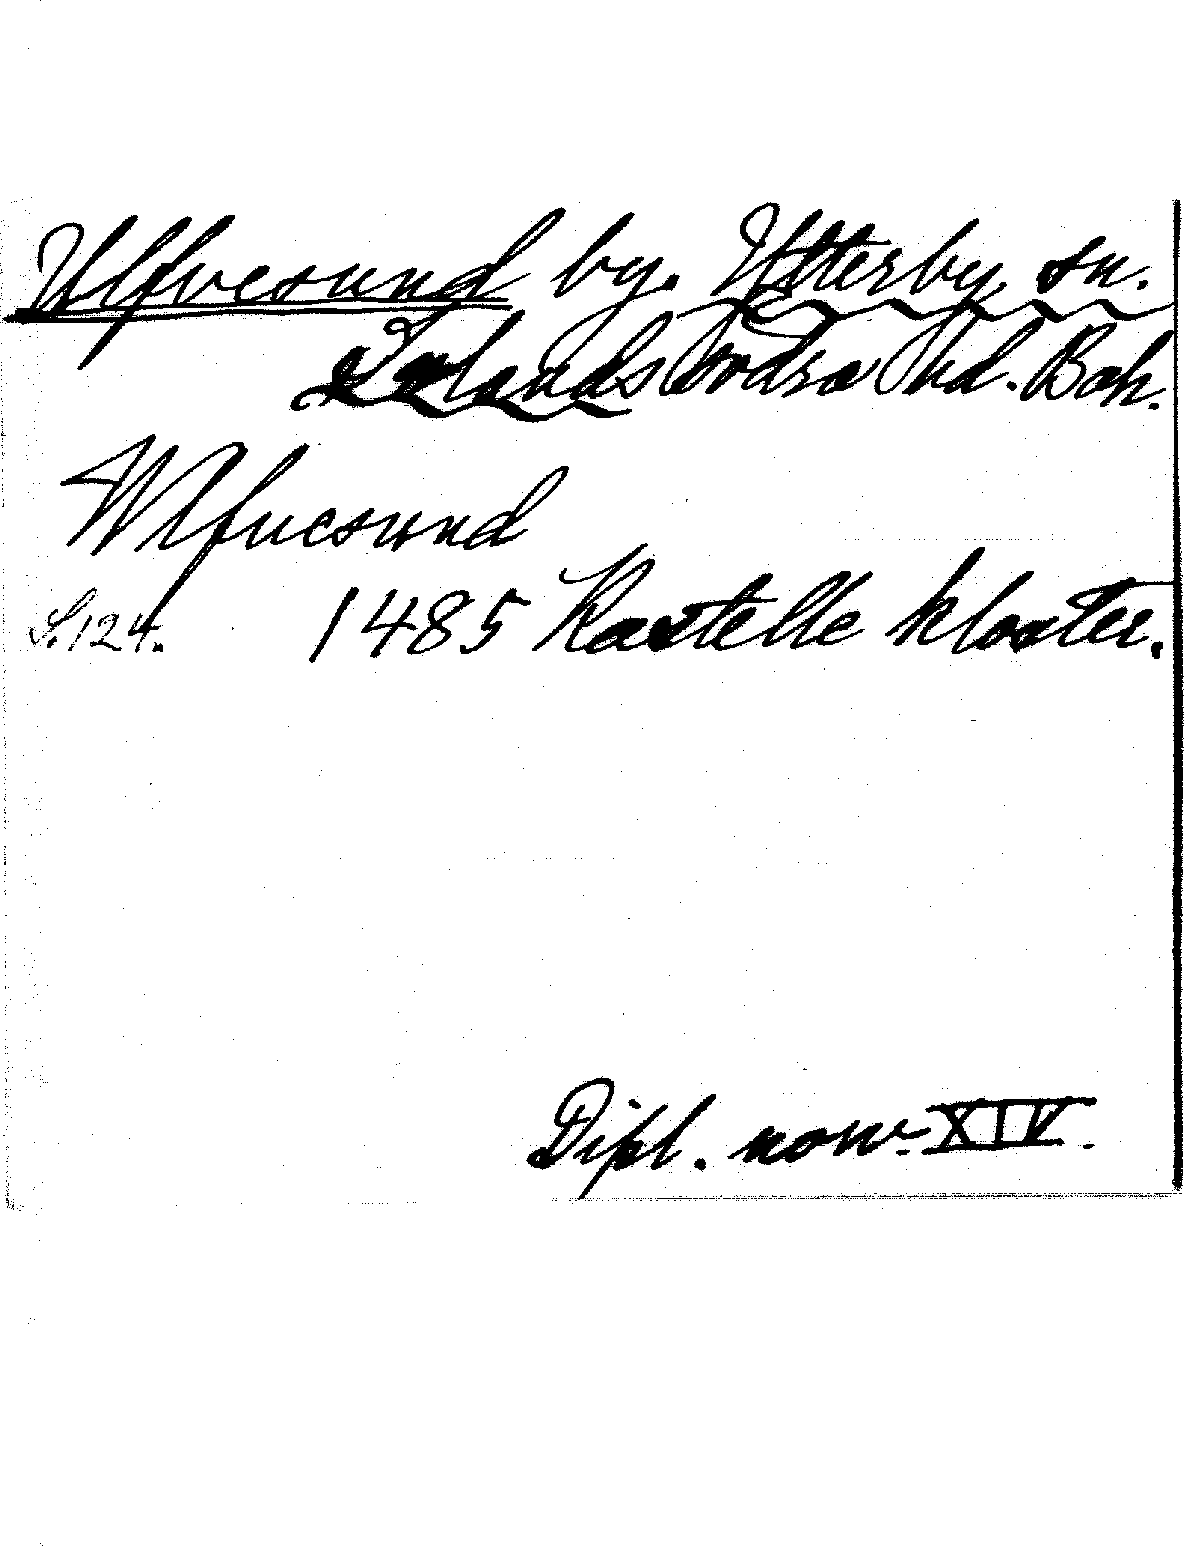 Ulfvesund by. Ytterby sn.
Inlands Södra hd. Boh.
Wlfuesund
S. 124. 1485 Kastelle kloster.
Dipl. norv. XIV.